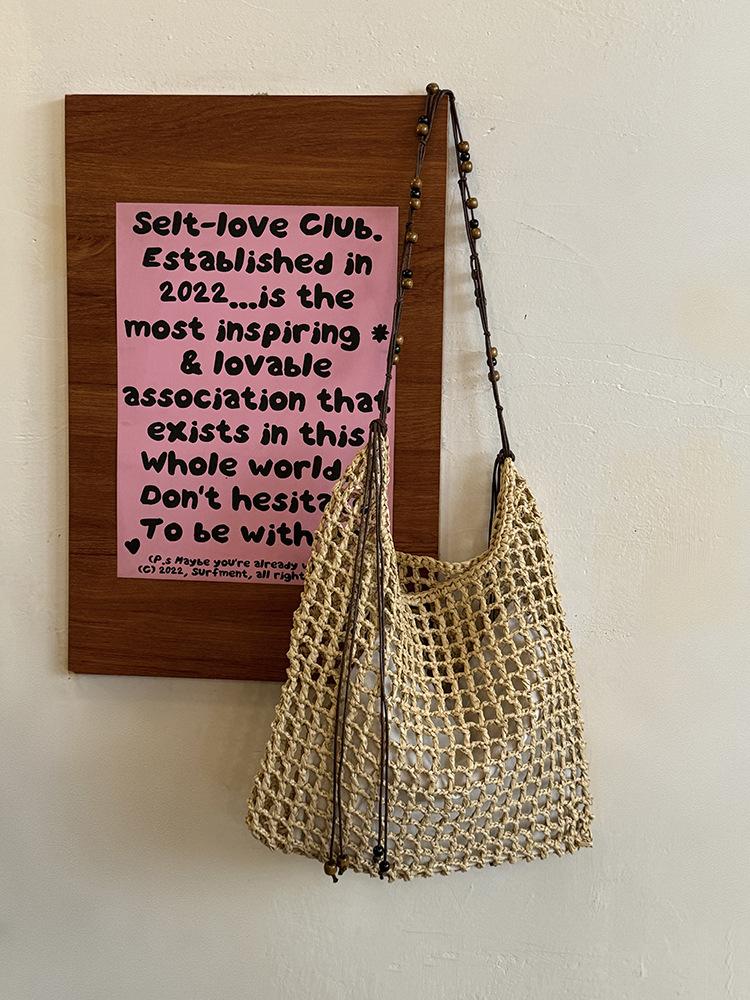 Selt-love Club.
Established in
2022...is the
most inspiring *
& lovable
association that
exists in this
Whole world
Don't
To be with
(P.s Maybe you're already
(C) 2022, Surfment, all right